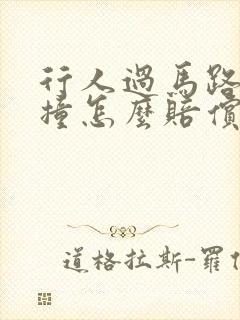 行人過馬路
撞怎麼賠償
道格拉斯-羅